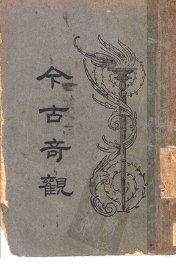 今古奇觀